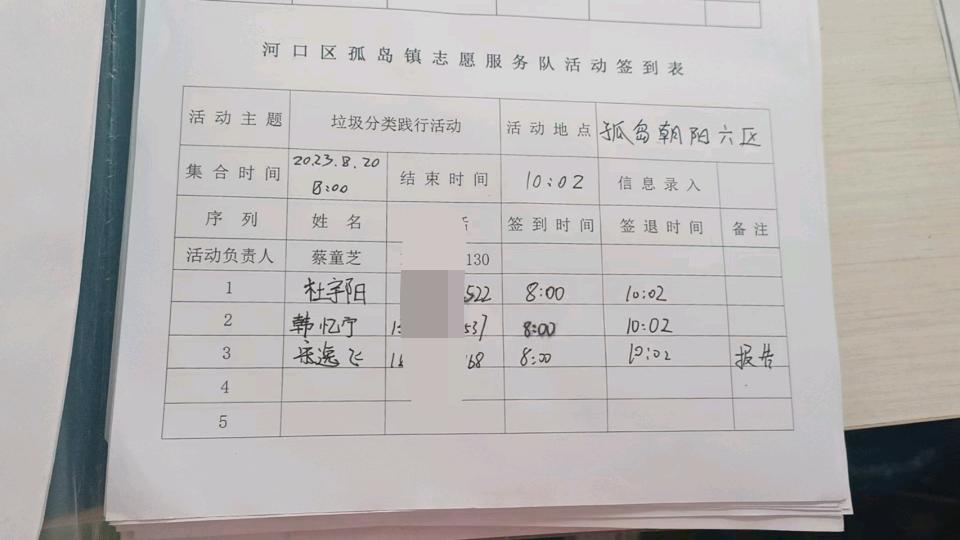 河口区孤岛镇志愿服务队活动签到表
活动主题 垃圾分类践行活动 活动地点 孤岛朝阳六区
集合时间 2023.8.20 8:00 结束时间 10:02 信息录入
序列 姓名 签到时间 签退时间 备注
活动负责人 蔡童芝 130
1 杜宇阳 522 8:00 10:02
2 韩忆宁 537 8:00 10:02
3 宋逸飞 16 68 8:00 10:02 报告
4
5